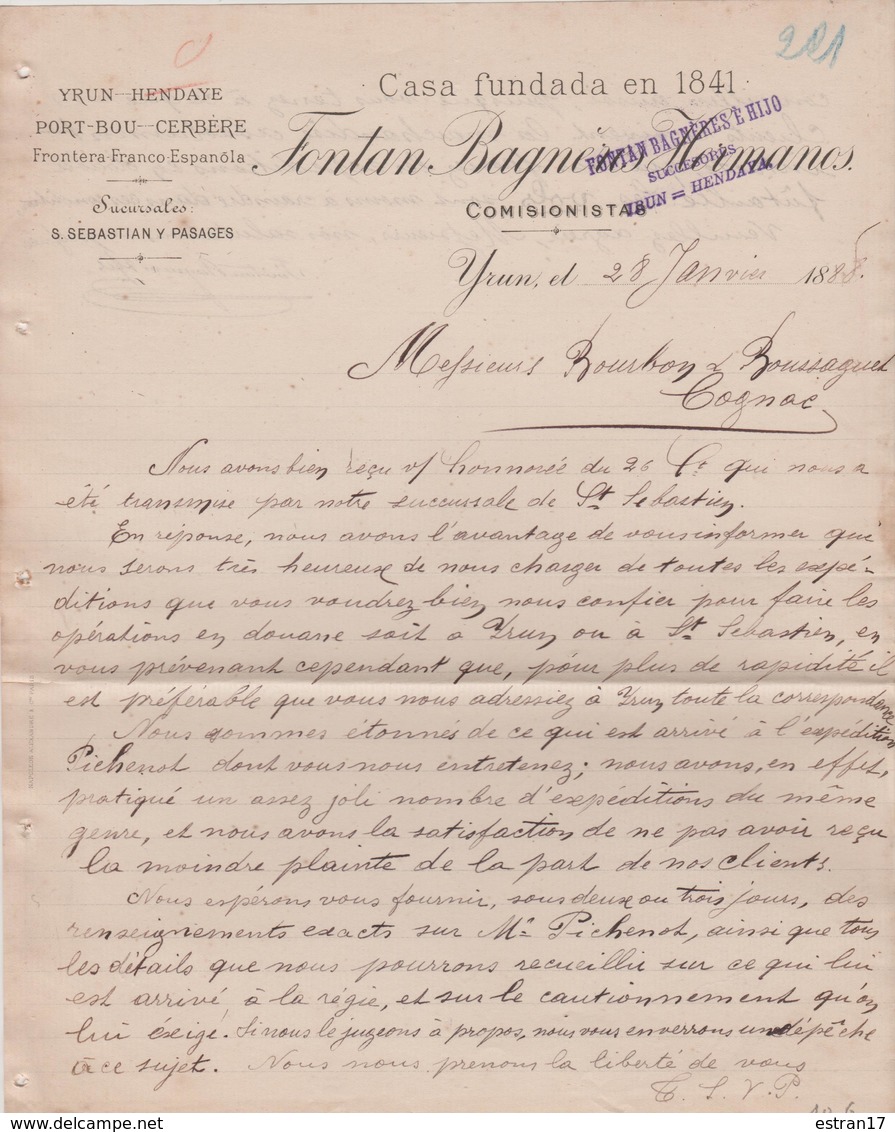 221
YRUN-HENDAYE
PORT-BOU-CERBÈRE
Frontera-Franco-Española
Sucursales:
S. SEBASTIAN Y PASAGES
Casa fundada en 1841
Fontan Bagnères Hermanos.
COMISIONISTAS
FONTAN BAGNÈRES É HIJO
SUCCESORES
IRUN = HENDAYA
Yrun, el 28 Janvier 1888.
Messieurs Bourbon & Boussaguet
Cognac
Nous avons bien reçu v/ honnorée du 26 Ct qui nous a
été transmise par notre succursale de St Sebastien.
En réponse, nous avons l'avantage de vous informer que
nous serons très heureux de nous charger de toutes les expé-
ditions que vous voudrez bien nous confier pour faire les
opérations en douane soit à Yrun ou à St Sebastien, en
vous prévenant cependant que, pour plus de rapidité il
est préférable que vous nous adressiez à Yrun toute la correspondence
Nous sommes étonnés de ce qui est arrivé à l'expédition
Pichenot dont vous nous entretenez; nous avons, en effet,
pratiqué un assez joli nombre d'expéditions du même
genre, et nous avons la satisfaction de ne pas avoir reçu
la moindre plainte de la part de nos clients.
Nous espérons vous fournir, sous deux ou trois jours, des
renseignements exacts sur Mr Pichenot, ainsi que tous
les détails que nous pourrons recueillir sur ce qui lui
est arrivé à la régie, et sur le cautionnement qu'on
lui exige. Si nous le jugeons à propos, nous vous enverrons un dépêche
à ce sujet. Nous nous prenons la liberté de vous
T. S. V. P.
www.delcampe.net
estran17